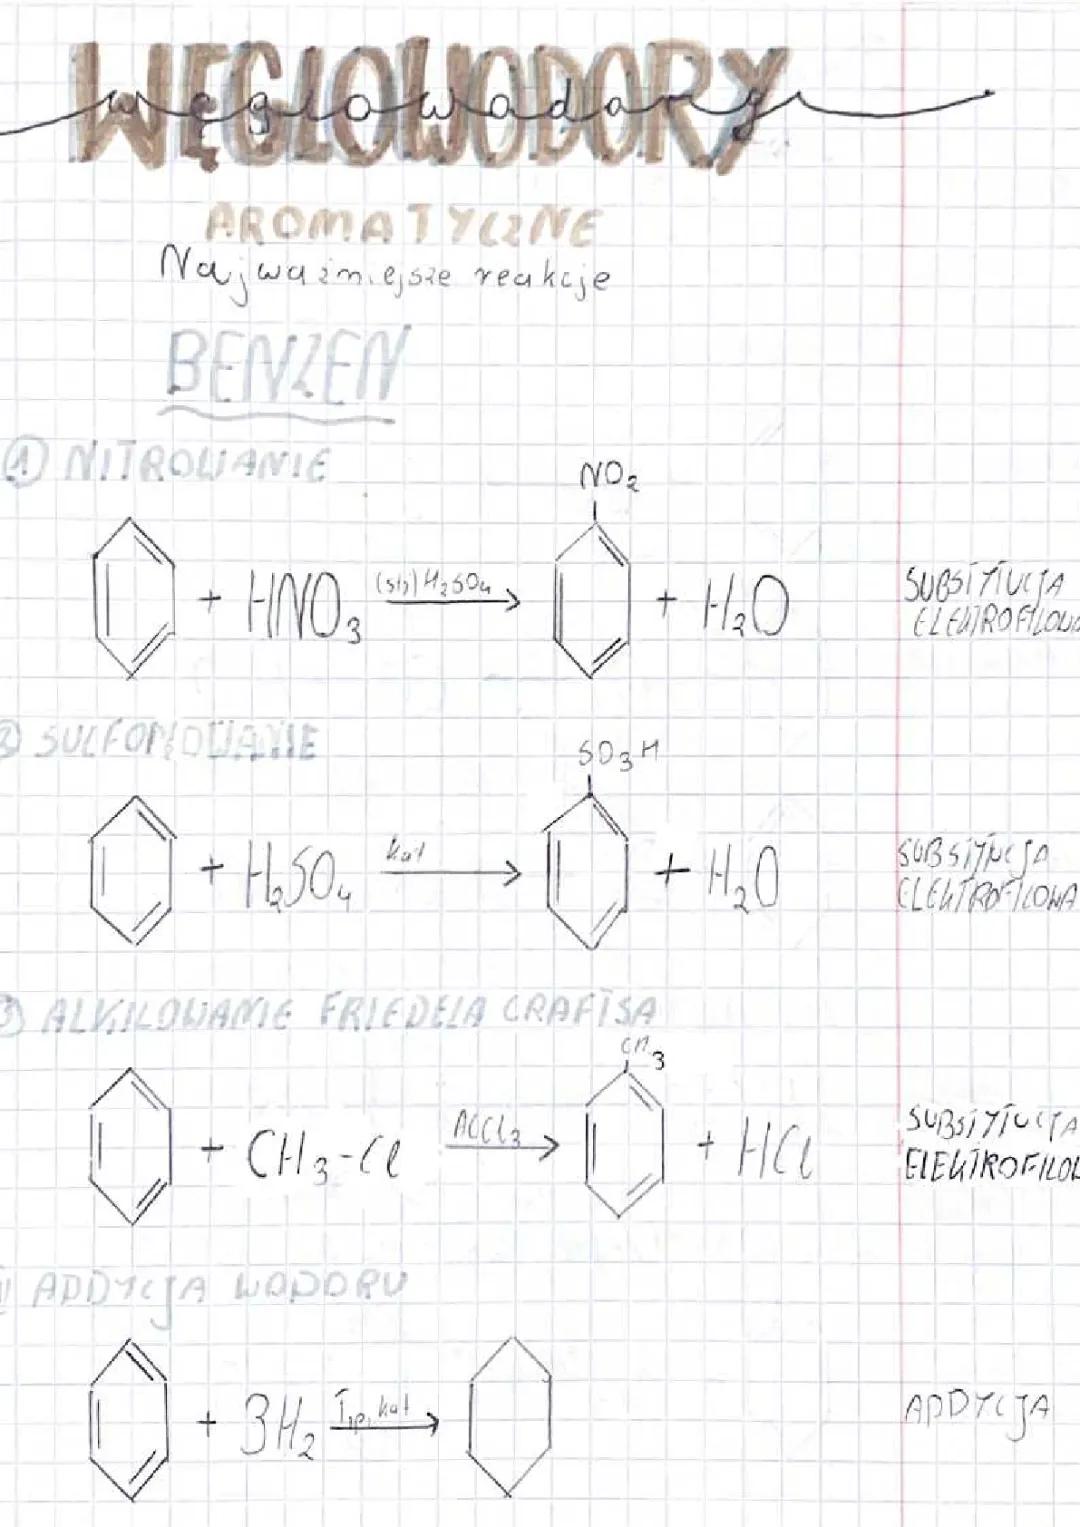 WĘGLOWODORY
węglowodory
AROMATYCZNE
Najważniejsze reakcje
BENZEN
① NITROWANIE
NO₂
+ HNO₃ (stęż) H₂SO₄ → + H₂O
SUBSTYTUCJA
ELEKTROFILOWA
② SULFONOWANIE
SO₃H
+ H₂SO₄ kat → + H₂O
SUBSTYTUCJA
ELEKTROFILOWA
③ ALKILOWANIE FRIEDELA CRAFTSA
CH₃
+ CH₃-Cl AlCl₃ → + HCl
SUBSTYTUCJA
ELEKTROFILOW
ADDYCJA WODORU
+ 3H₂ T,p, kat →
ADDYCJA